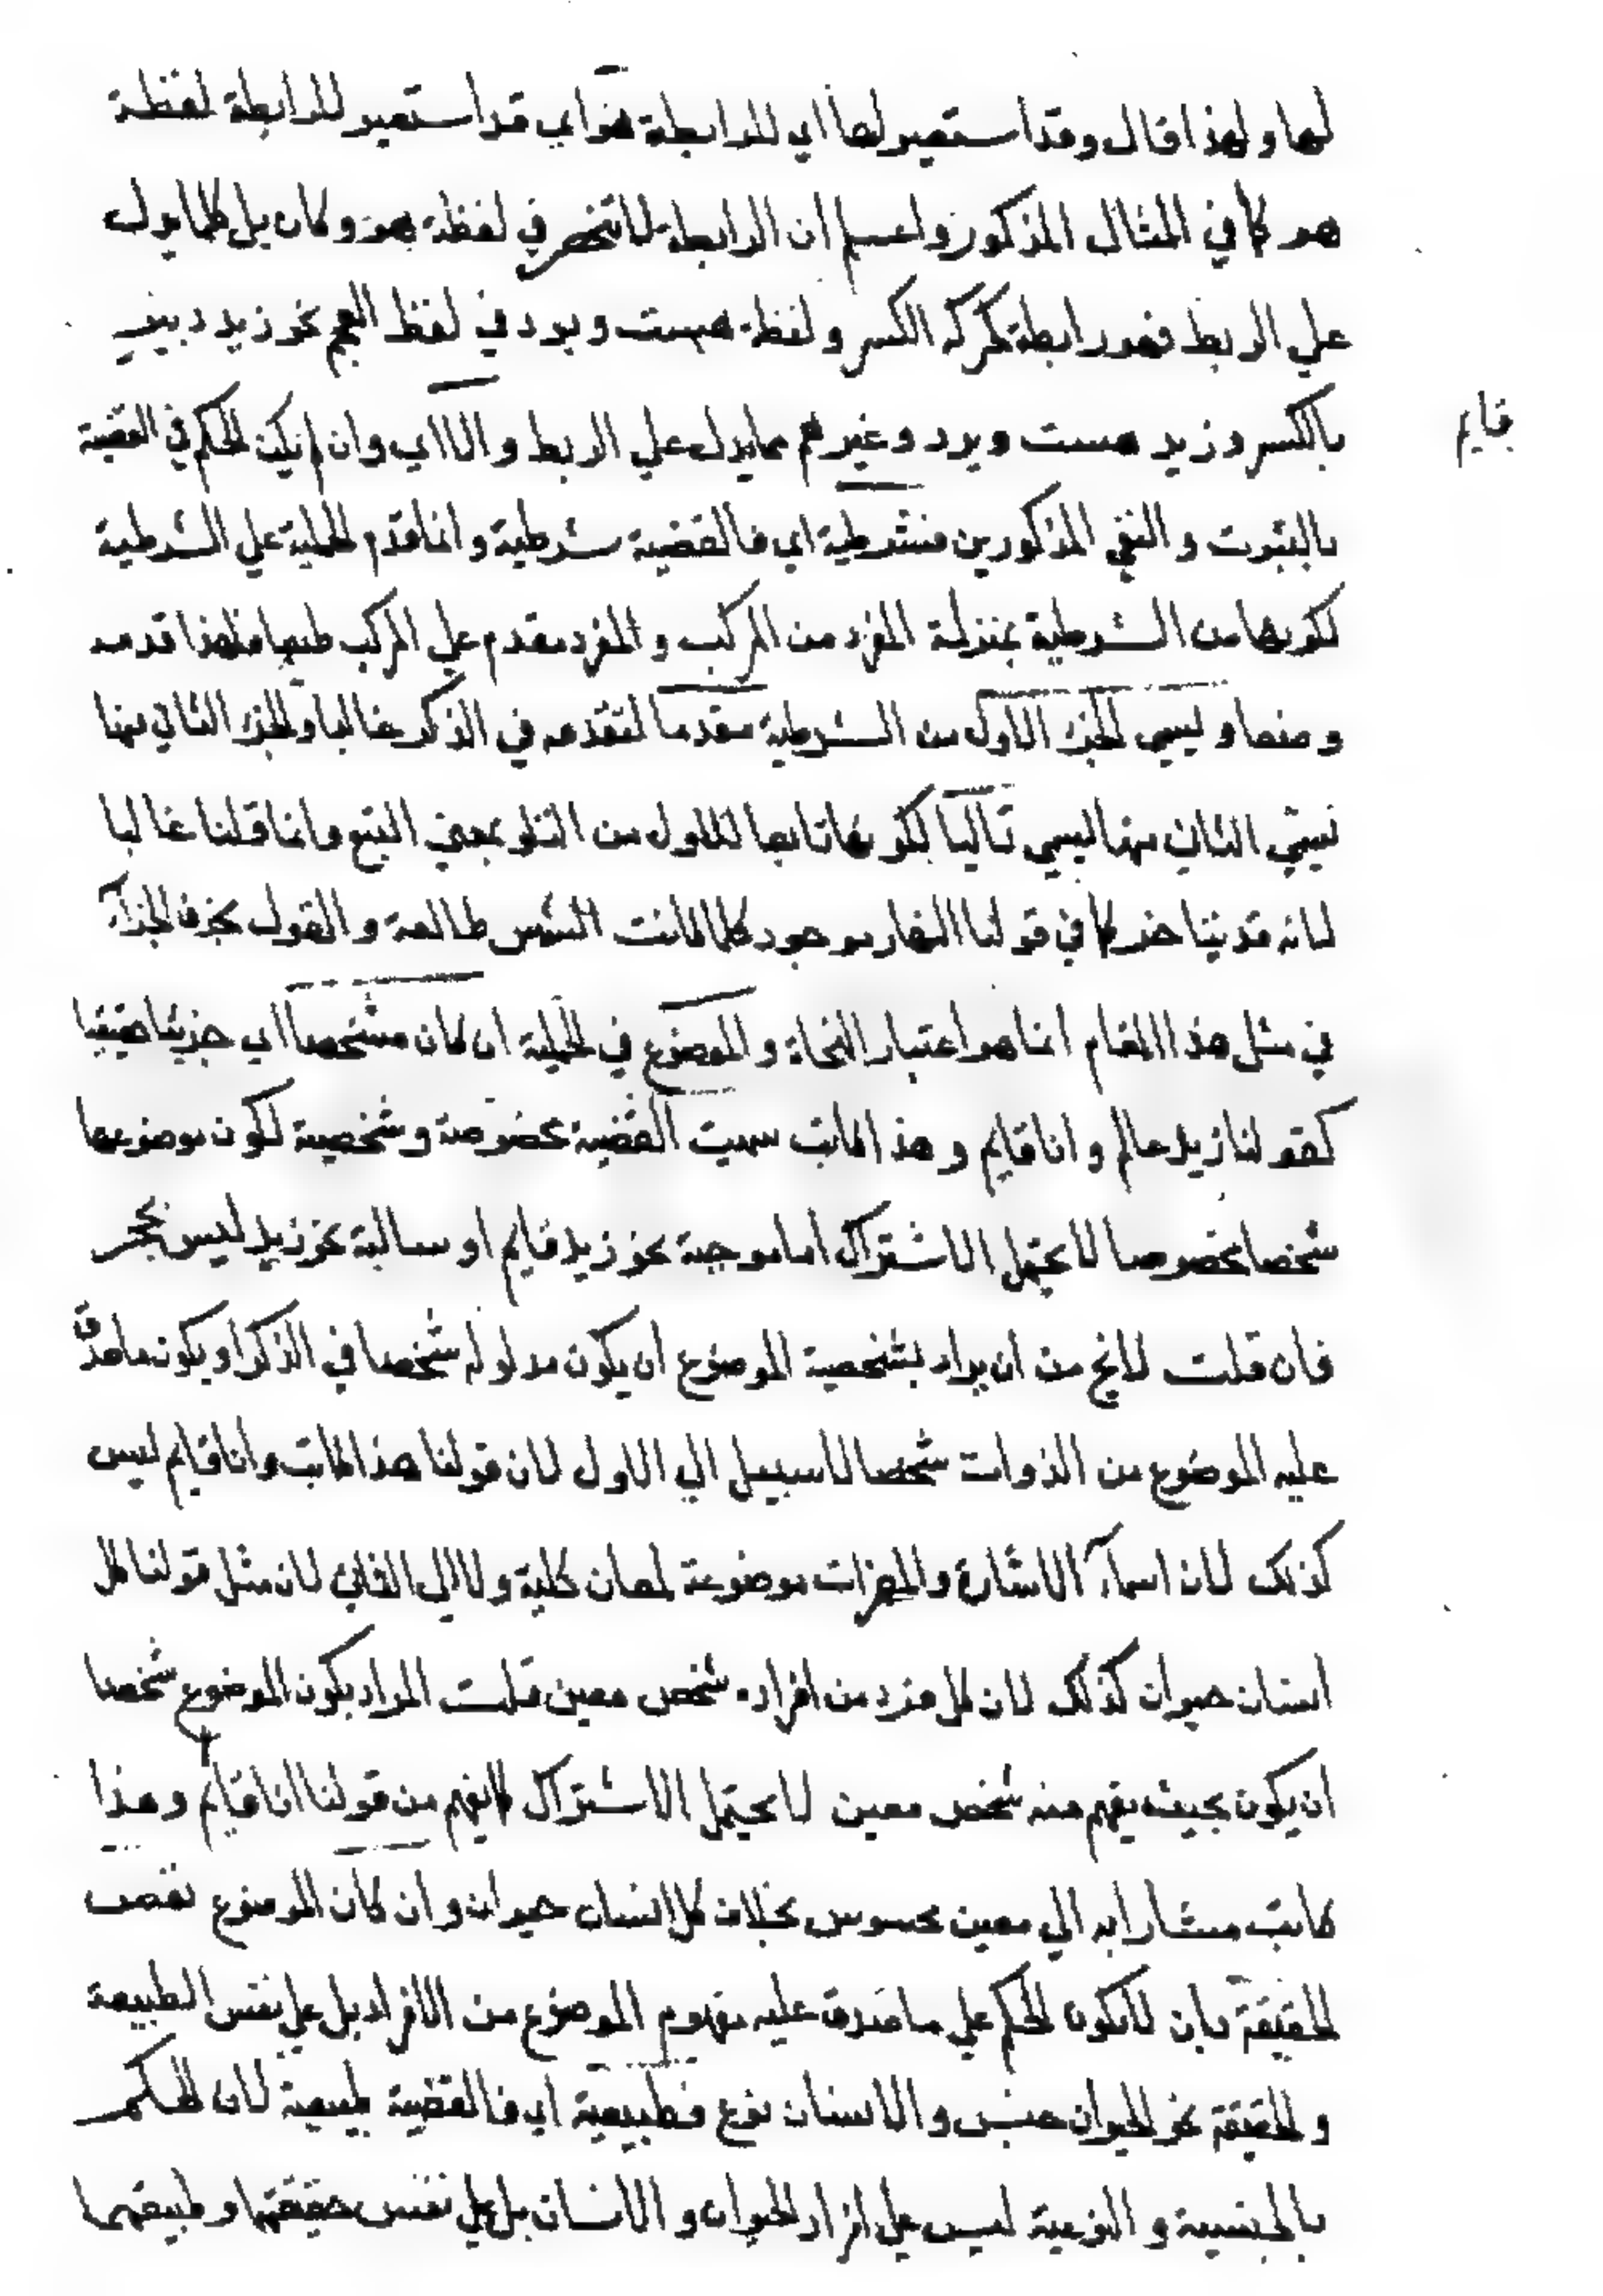 لها ولهذا قال وقد استعير لها اي للرابطة هو اي قد استعير للرابطة لفظة
هو كما في المثال المذكور واعلم ان الرابطة لا تنحصر في لفظة هو وكان بل كلما يدل
علي الربط فهو رابطة كحركة الكسر ولفظة هست وبود في لفظ العجم نحو زيد دبير
بالكسر وزيد هست وبود وغيرهم مما يدل علي الربط والا اي وان لم يكن الحكم في القضية
قايم
بالثبوت والنفي المذكورين فشرطية اي فالقضية شرطية وانما قدم الحملية علي الشرطية
لكونها من الشرطية بمنزلة المفرد من المركب والمفرد مقدم علي المركب طبعا فلهذا قدمه
وضعا ويسمي الجزء الاول من الشرطية مقدما لتقدمه في الذكر غالبا والجزء الثاني منها
يسمي الثاني منها ليسمي تاليا لكونها تابعا للاول من التلو بمعني التبع وانما قلنا غالبا
لانه قد يتاخر كما في قولنا النهار موجود كلما كانت الشمس طالعة والقول بحذف الجزآء
في مثل هذا المقام انما هو اعتبار النحاة والموضوع في الحملية ان كان مشخصا اي جزئيا حقيقيا
كقولنا زيد عالم وانا قايم وهذا كاتب سميت القضية مخصوصة وشخصية لكون موضوعها
شخصا مخصوصا لا يحتمل الاشتراك اما موجبة نحو زيد قايم او سالبة نحو زيد ليس بحجر
فان قلت لا يخ من ان يراد بشخصية الموضوع ان يكون مدلوله شخصا في الذكر او يكون ما صدق
عليه الموضوع من الذوات شخصا لا سبيل الي الاول لان قولنا هذا كاتب وانا قايم ليس
كذلك لان اسمآء الاشارة والمضمرات موضوعة لمعان كلية ولا الي الثاني لان مثل قولنا كل
انسان حيوان كذلك لان كل فرد من افراده شخص معين قلت المراد بكون الموضوع شخصا
ان يكون بحيث يفهم منه شخص معين لا يحتمل الاشتراك كما يفهم من قولنا انا قايم وهذا
كاتب مشارا به الي معين محسوس بخلاف كل انسان حيوان وان كان الموضوع نفس
الحقيقة بان لا يكون الحكم علي ما صدق عليه مفهوم الموضوع من الافراد بل علي نفس الطبيعة
والحقيقة نحو الحيوان جنس والانسان نوع فطبيعية اي فالقضية طبيعية لان الحكم
بالجنسية والنوعية ليس علي افراد الحيوان والانسان بل علي نفس حقيقتهما وطبيعتهما